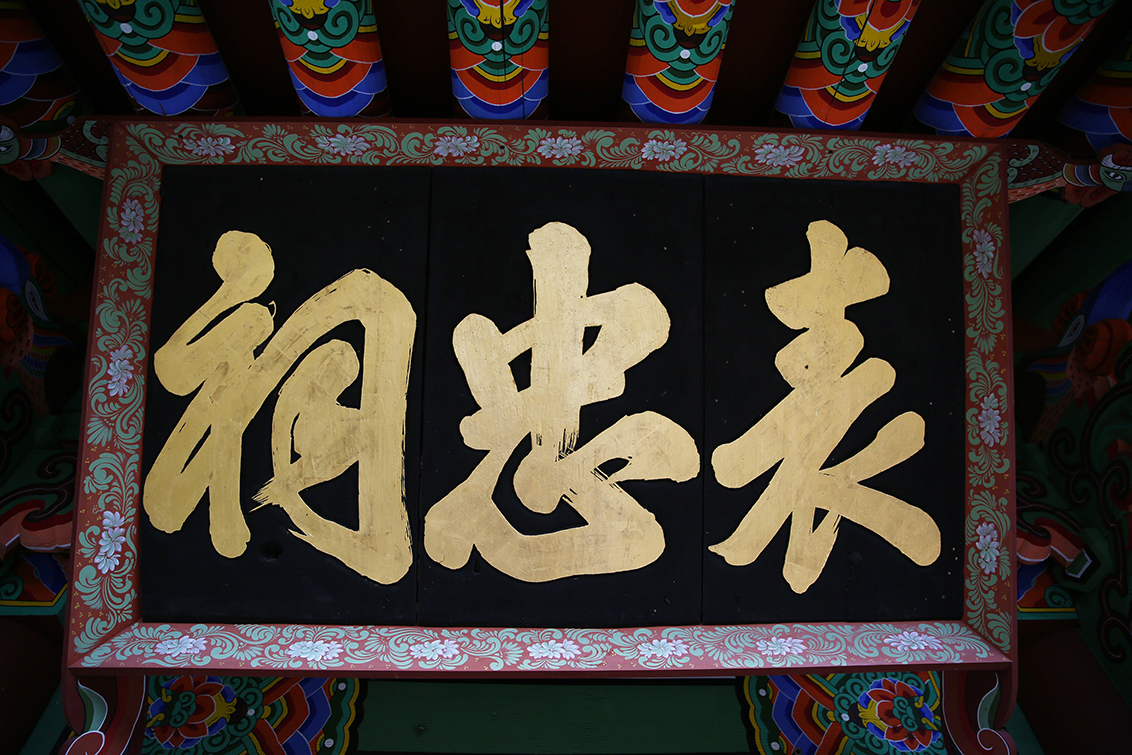 表忠祠